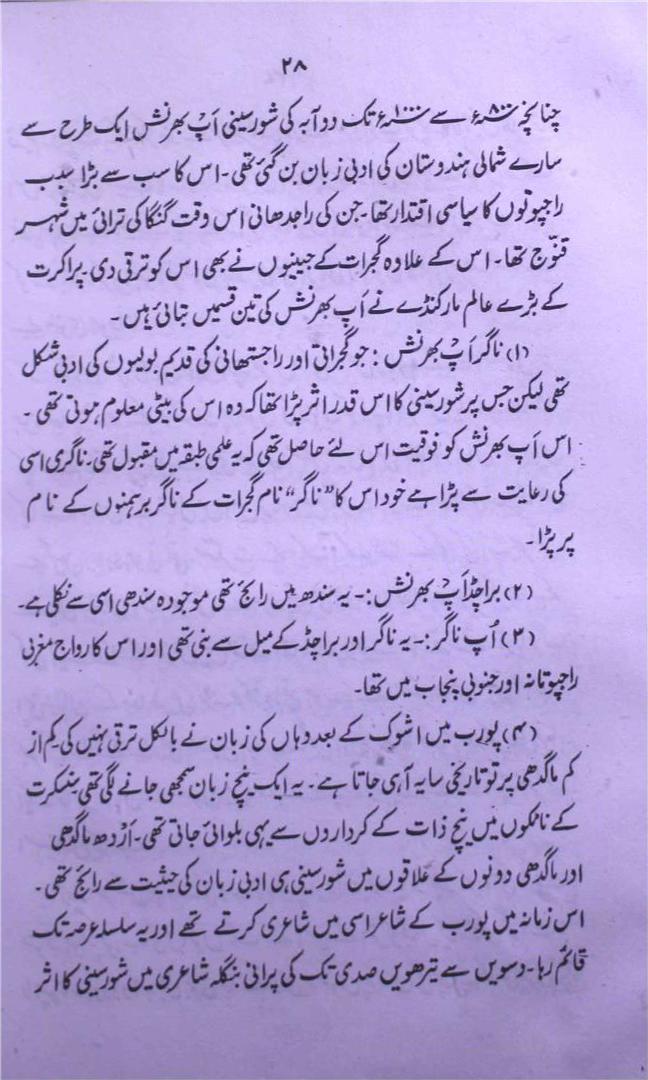 ۲۸
چنانچہ ۸۰۰ء سے ۱۰۰۰ء تک دوآبہ کی شورسینی اَپ بھرنش ایک طرح سے
سارے شمالی ہندوستان کی ادبی زبان بن گئی تھی۔ اس کا سب سے بڑا سبب
راجپوتوں کا سیاسی اقتدار تھا۔ جن کی راجدھانی اس وقت گنگا کی ترائی میں شہر
قنّوج تھا۔ اس کے علاوہ گجرات کے جینیوں نے بھی اس کو ترقی دی۔ پراکرت
کے بڑے عالم مارکنڈے نے اَپ بھرنش کی تین قسمیں بتائی ہیں۔
(۱) ناگر اَپ بھرنش : جو گجراتی اور راجستھانی کی قدیم بولیوں کی ادبی شکل
تھی لیکن جس پر شورسینی کا اس قدر اثر پڑا تھا کہ وہ اس کی بیٹی معلوم ہوتی تھی۔
اس اَپ بھرنش کو فوقیت اس لئے حاصل تھی کہ یہ علمی طبقہ میں مقبول تھی۔ ناگری اسی
کی رعایت سے پڑا ہے خود اس کا "ناگر" نام گجرات کے ناگر برہمنوں کے نام
پر پڑا۔
(۲) براچڈ اَپ بھرنش :۔ یہ سندھ میں رائج تھی موجودہ سندھی اسی سے نکلی ہے۔
(۳) اُپ ناگر :۔ یہ ناگر اور براچڈ کے میل سے بنی تھی اور اس کا رواج مغربی
راجپوتانہ اور جنوبی پنجاب میں تھا۔
(۴) پورب میں اشوک کے بعد وہاں کی زبان نے بالکل ترقی نہیں کی۔ کم از
کم ماگدھی پر تو تاریخی سایہ آ ہی جاتا ہے۔ یہ ایک نیچ زبان سمجھی جانے لگی تھی سنسکرت
کے ناٹکوں میں نیچ ذات کے کرداروں سے یہی بلوائی جاتی تھی۔ اَرْدھ ماگدھی
اور ماگدھی دونوں کے علاقوں میں شورسینی ہی ادبی زبان کی حیثیت سے رائج تھی۔
اس زمانہ میں پورب کے شاعر اسی میں شاعری کرتے تھے اور یہ سلسلہ عرصہ تک
قائم رہا۔ دسویں سے تیرھویں صدی تک کی پرانی بنگلہ شاعری میں شورسینی کا اثر